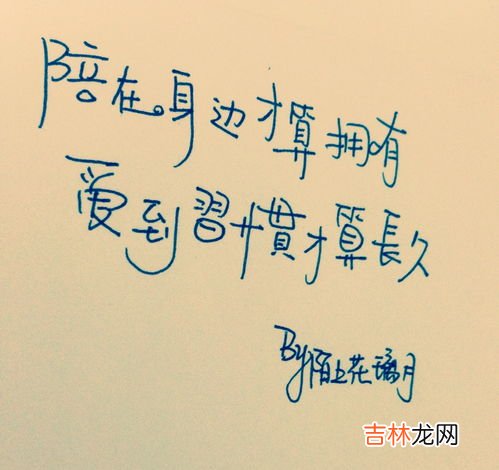 陪在身边才算拥有
爱到習慣才算長久
By陌上花璃月
吉林龙网